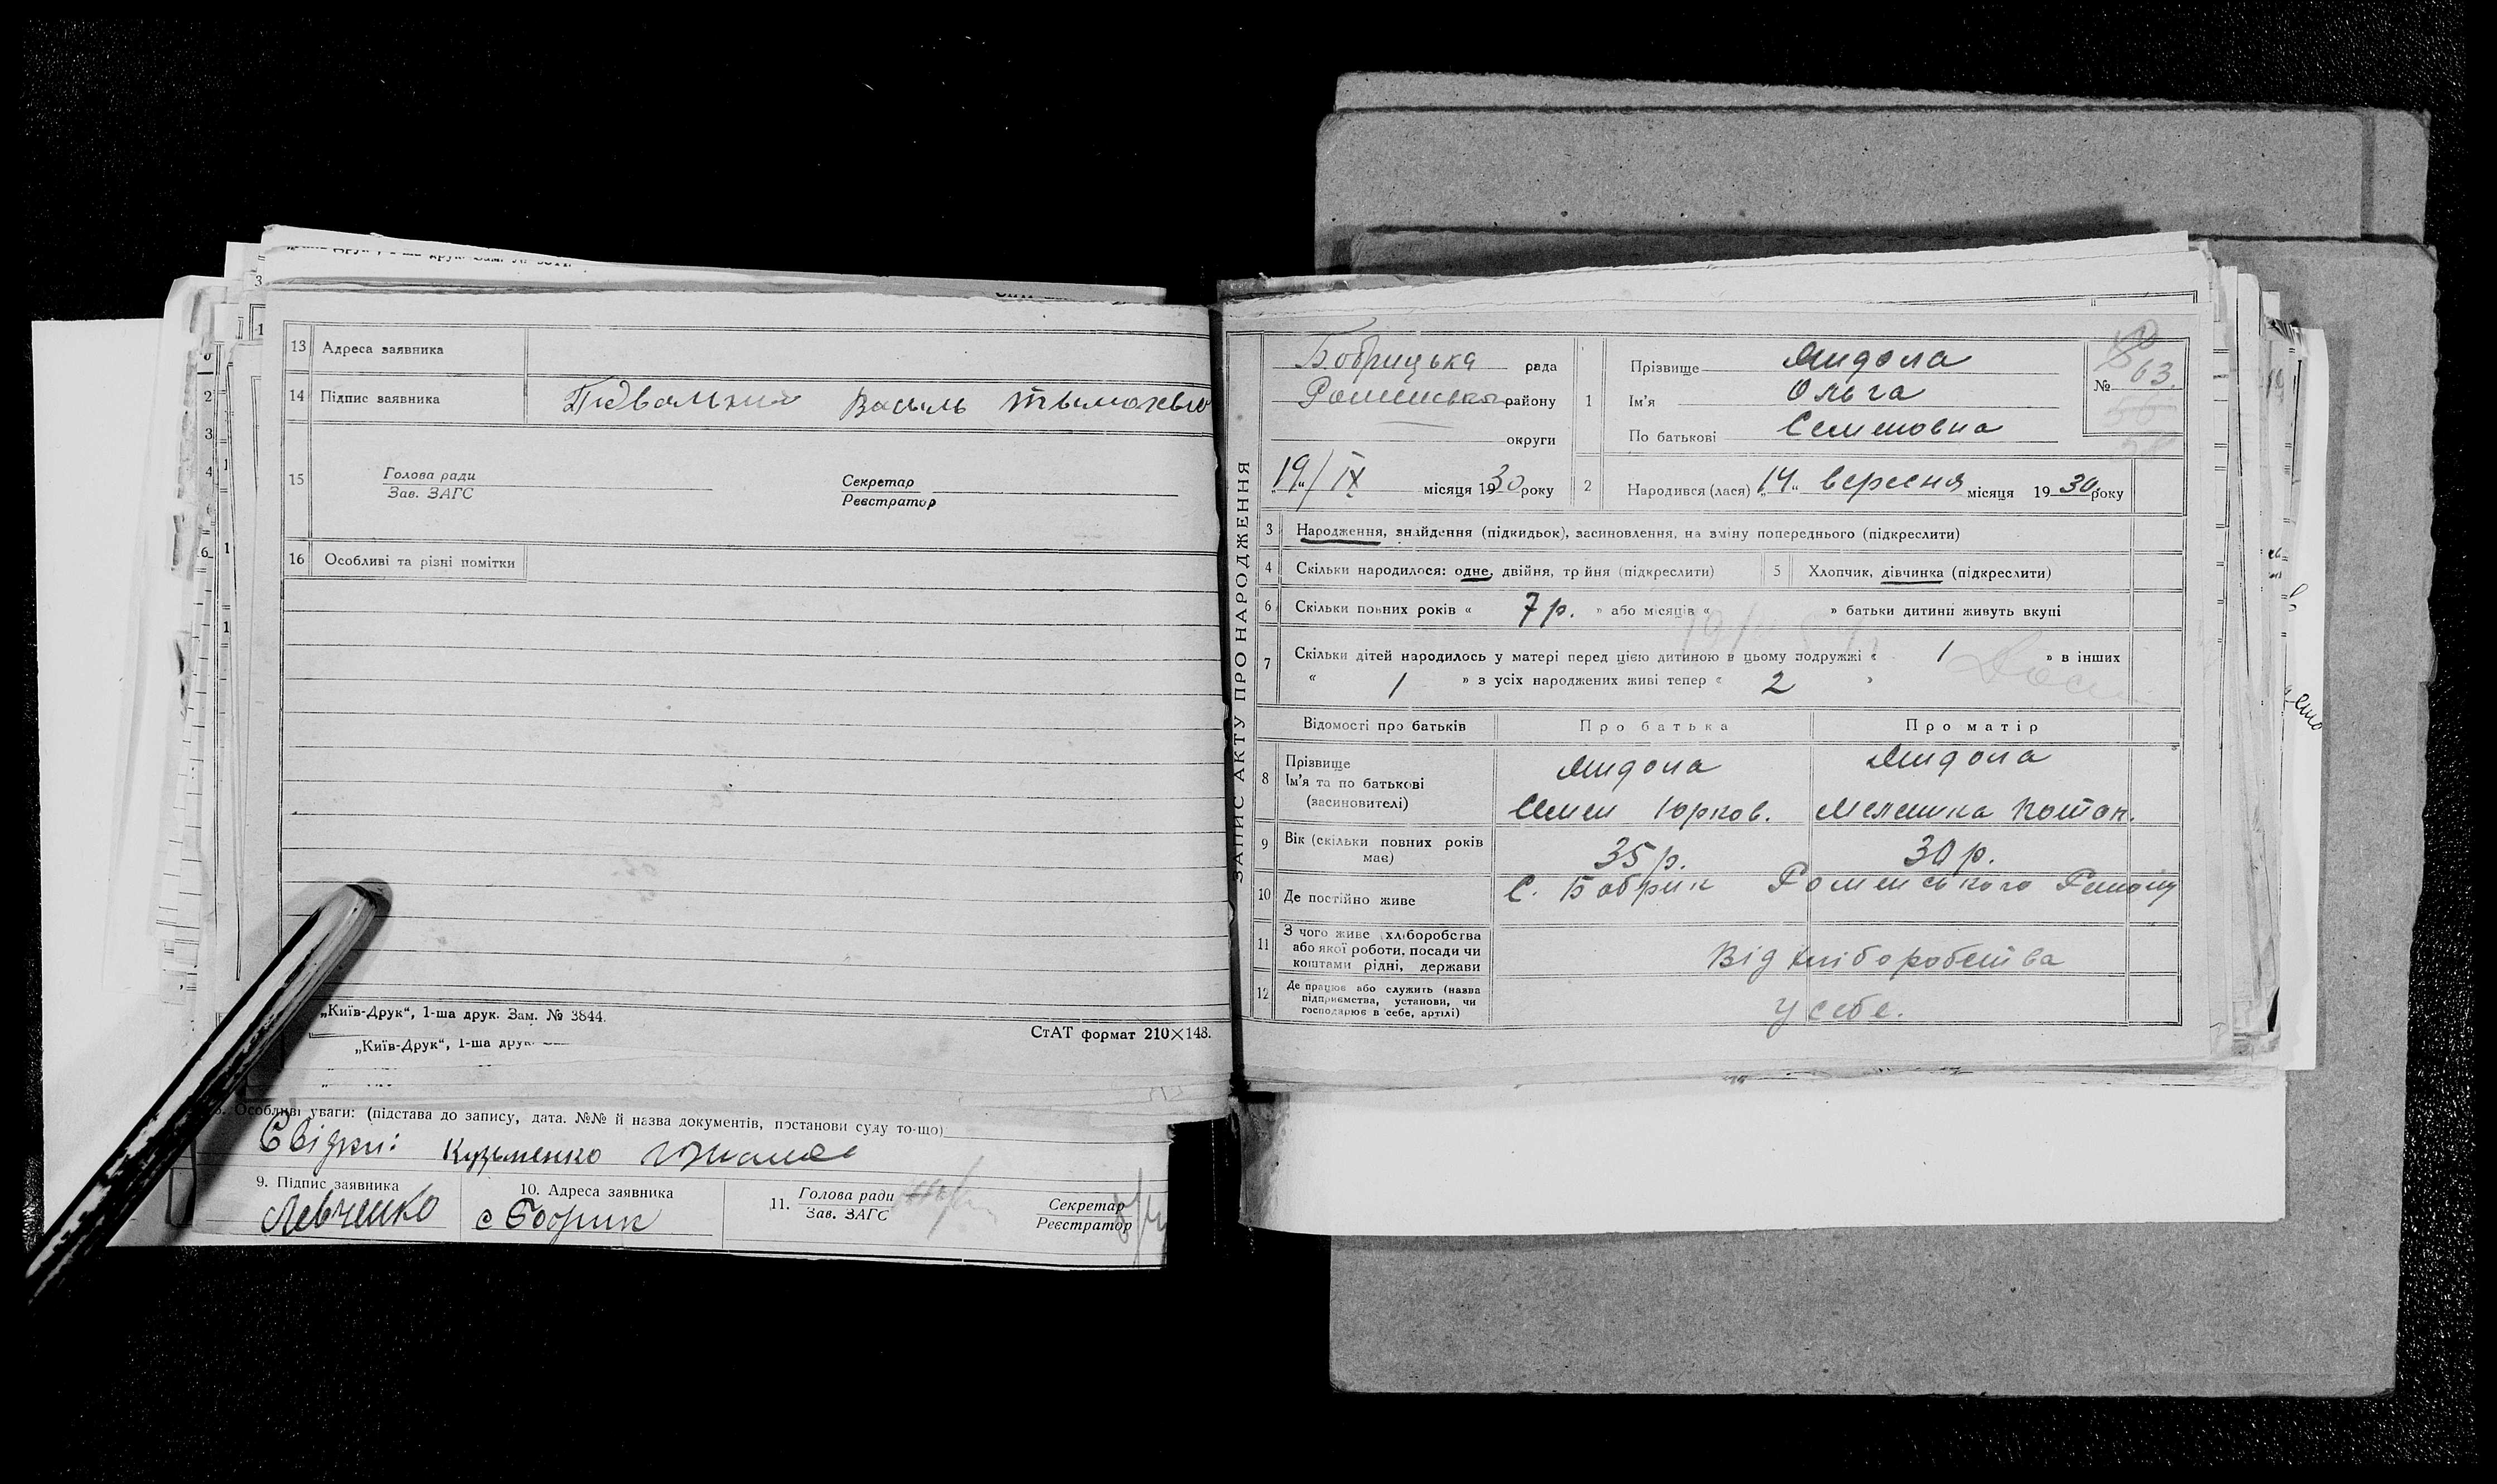 13 Адреса заявника
14 Підпис заявника Підвальний Василь Тымохвію
15 Голова ради
Зав. ЗАГС
Секретар
Реєстратор
16 Особливі та різні помітки
„Київ-Друк“, 1-ша друк. Зам. № 3844.
СтАТ формат 210×148.
„Київ-Друк“, 1-ша друк.
Особливі уваги: (підстава до запису, дата. №№ й назва документів, постанови суду то-що)
Свідки: Кузьменко
9. Підпис заявника
Левченко
10. Адреса заявника
с Бобрик
11. Голова ради
Зав. ЗАГС
Секретар
Реєстратор
ЗАПИС АКТУ ПРО НАРОДЖЕННЯ
Бобрицька рада
Роменськ району
округи
„19“/ IX місяця 1930 року
1 Прізвище Мидола
Ім'я Ольга
По батькові Семеновна
№ 63.
2 Народився (лася) „14“ вересня місяця 1930 року
3 Народження, знайдення (підкидьок), засиновлення, на зміну попереднього (підкреслити)
4 Скільки народилося: одне, двійня, трійня (підкреслити)
5 Хлопчик, дівчинка (підкреслити)
6 Скільки повних років « 7 р. » або місяців « » батьки дитини живуть вкупі
7 Скільки дітей народилось у матері перед цією дитиною в цьому подружжі « 1 » в інших
« 1 » з усіх народжених живі тепер « 2 »
Відомості про батьків
Про батька
Про матір
8 Прізвище
Ім'я та по батькові
(засиновителі)
Мидола
Семен Юрков.
Мидола
Меланика Потап.
9 Вік (скільки повних років
має)
35 р.
30 р.
10 Де постійно живе
С. Бобрик Роменського Району
11 З чого живе (хліборобства
або якої роботи, посади чи
коштами рідні, держави
Від хліборобства
12 Де працює або служить (назва
підприємства, установи, чи
господарює в себе, артілі)
у себе.